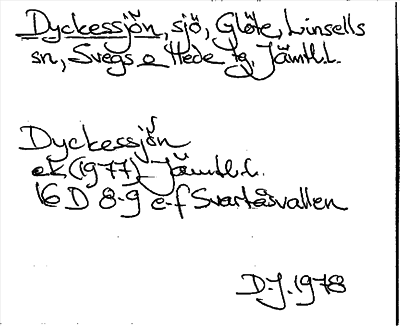 Dyckessjön, sjö, Glöte, Linsells
sn, Svegs o Hede tg, Jämtl.l.
Dyckessjön
ek (1977) Jämtl.l.
16 D 8-9 e-f Svartåsvallen
D.J. 1978